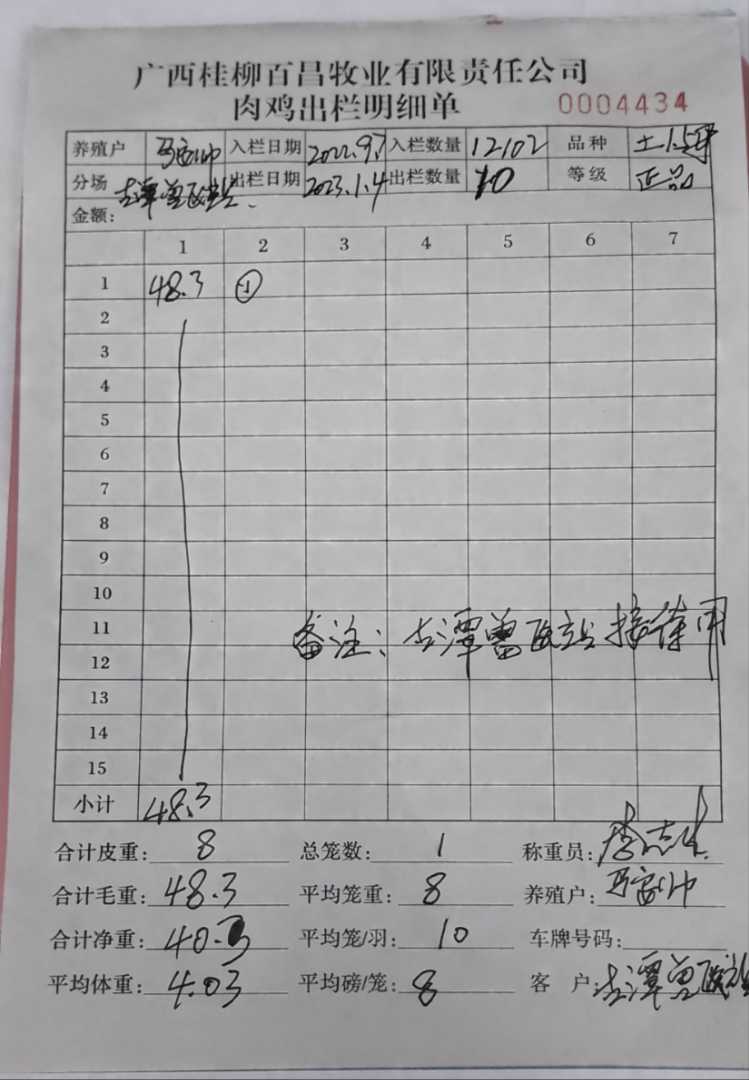 广西桂柳百昌牧业有限责任公司
肉鸡出栏明细单 0004434
养殖户 入栏日期 2022.9.7 入栏数量 12102 品种 土1.5
分场 出栏日期 2023.1.4 出栏数量 10 等级 正品
金额:
1 2 3 4 5 6 7
1 48.3 ①
2
3
4
5
6
7
8
9
10
11 备注: 潭 接待用
12
13
14
15
小计 48.3
合计皮重: 8 总笼数: 1 称重员: 李志
合计毛重: 48.3 平均笼重: 8 养殖户:
合计净重: 40.3 平均笼/羽: 10 车牌号码:
平均体重: 4.03 平均磅/笼: 8 客 户: 潭